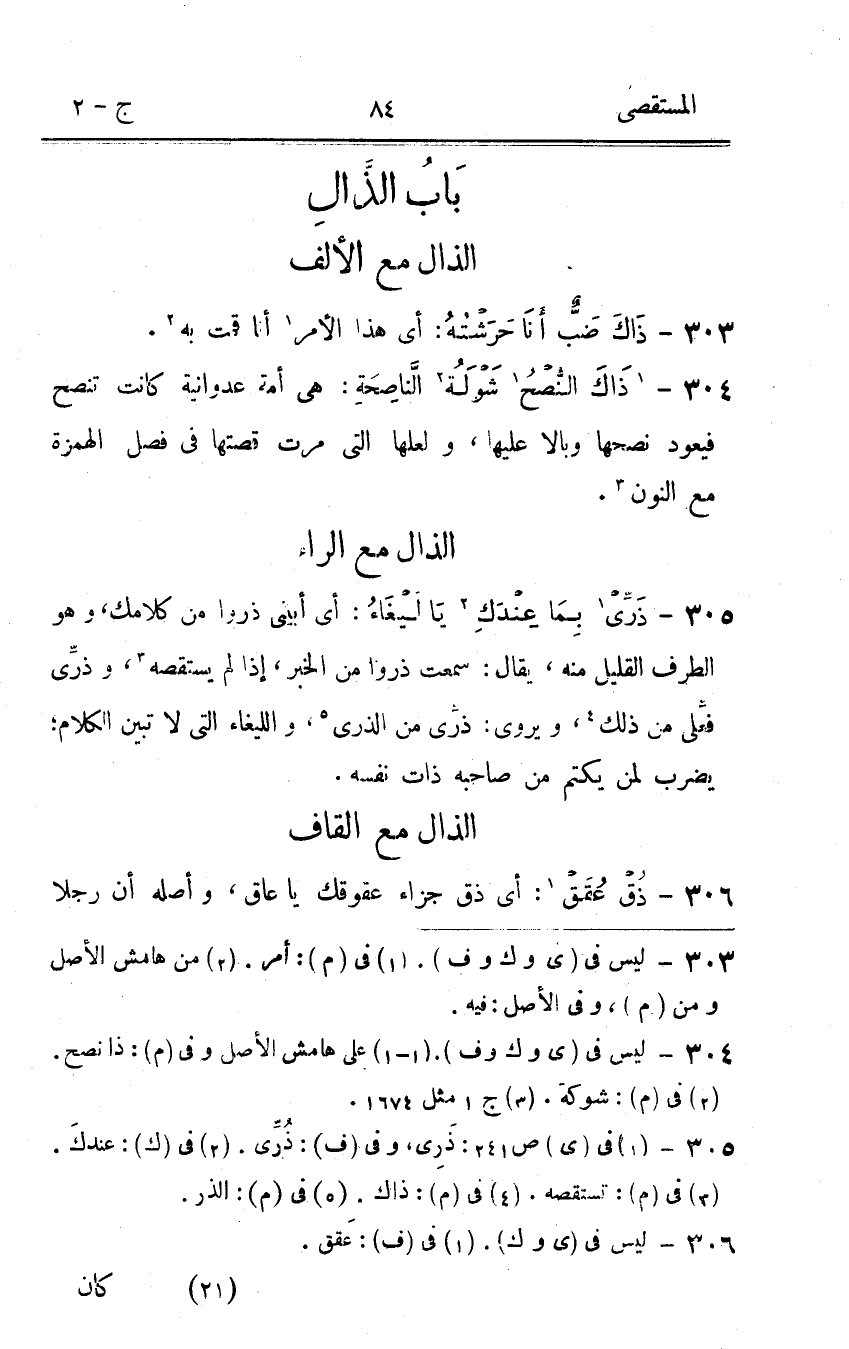 المستقصى ٨٤ ج - ٢
بَابُ الذَّالِ
الذال مع الألف
٣٠٣ - ذَاكَ ضَبٌّ أَنَا حَرَشْتُهُ: أى هذا الأمر١ أنا قمت به٢ .
٣٠٤ - ١ذَاكَ النُّصْحُ١ شَوْلَةُ٢ النَّاصِحَةِ : هى أمة عدوانية كانت تنصح
فيعود نصحها وبالا عليها ، و لعلها التى مرت قصتها فى فصل الهمزة
مع النون٣ .
الذال مع الراء
٣٠٥ - ذَرِّىْ١ بِمَا عِنْدَكِ٢ يَا لَيْغَاءُ : أى أبينى ذروا من كلامك، و هو
الطرف القليل منه ، يقال : سمعت ذروا من الخبر ، إذا لم يستقصه٣ ، و ذرِّى
فعّلى من ذلك٤ ، و يروى : ذرّى من الذرى٥ ، و الليغاء التى لا تبين الكلام؛
يضرب لمن يكتم من صاحبه ذات نفسه .
الذال مع القاف
٣٠٦ - ذُقْ عُقَقْ١ : أى ذق جزاء عقوقك يا عاق ، و أصله أن رجلا
٣٠٣ - ليس فى (ى و ك و ف) . (١) فى (م) : أمر . (٢) من هامش الأصل
و من (م) ، و فى الأصل : فيه .
٣٠٤ - ليس فى (ى و ك و ف) . (١-١) على هامش الأصل و فى (م) : ذا نصح .
(٢) فى (م) : شوكة . (٣) ج ١ مثل ١٦٧٤ .
٣٠٥ - (١) فى (ى) ص ٢٤١ : ذَرِى، و فى (ف) : ذُرِّى . (٢) فى (ك) : عندكَ .
(٣) فى (م) : تستقصه . (٤) فى (م) : ذاك . (٥) فى (م) : الذر .
٣٠٦ - ليس فى (ى و ك) . (١) فى (ف) : عَقق .
(٢١) كان